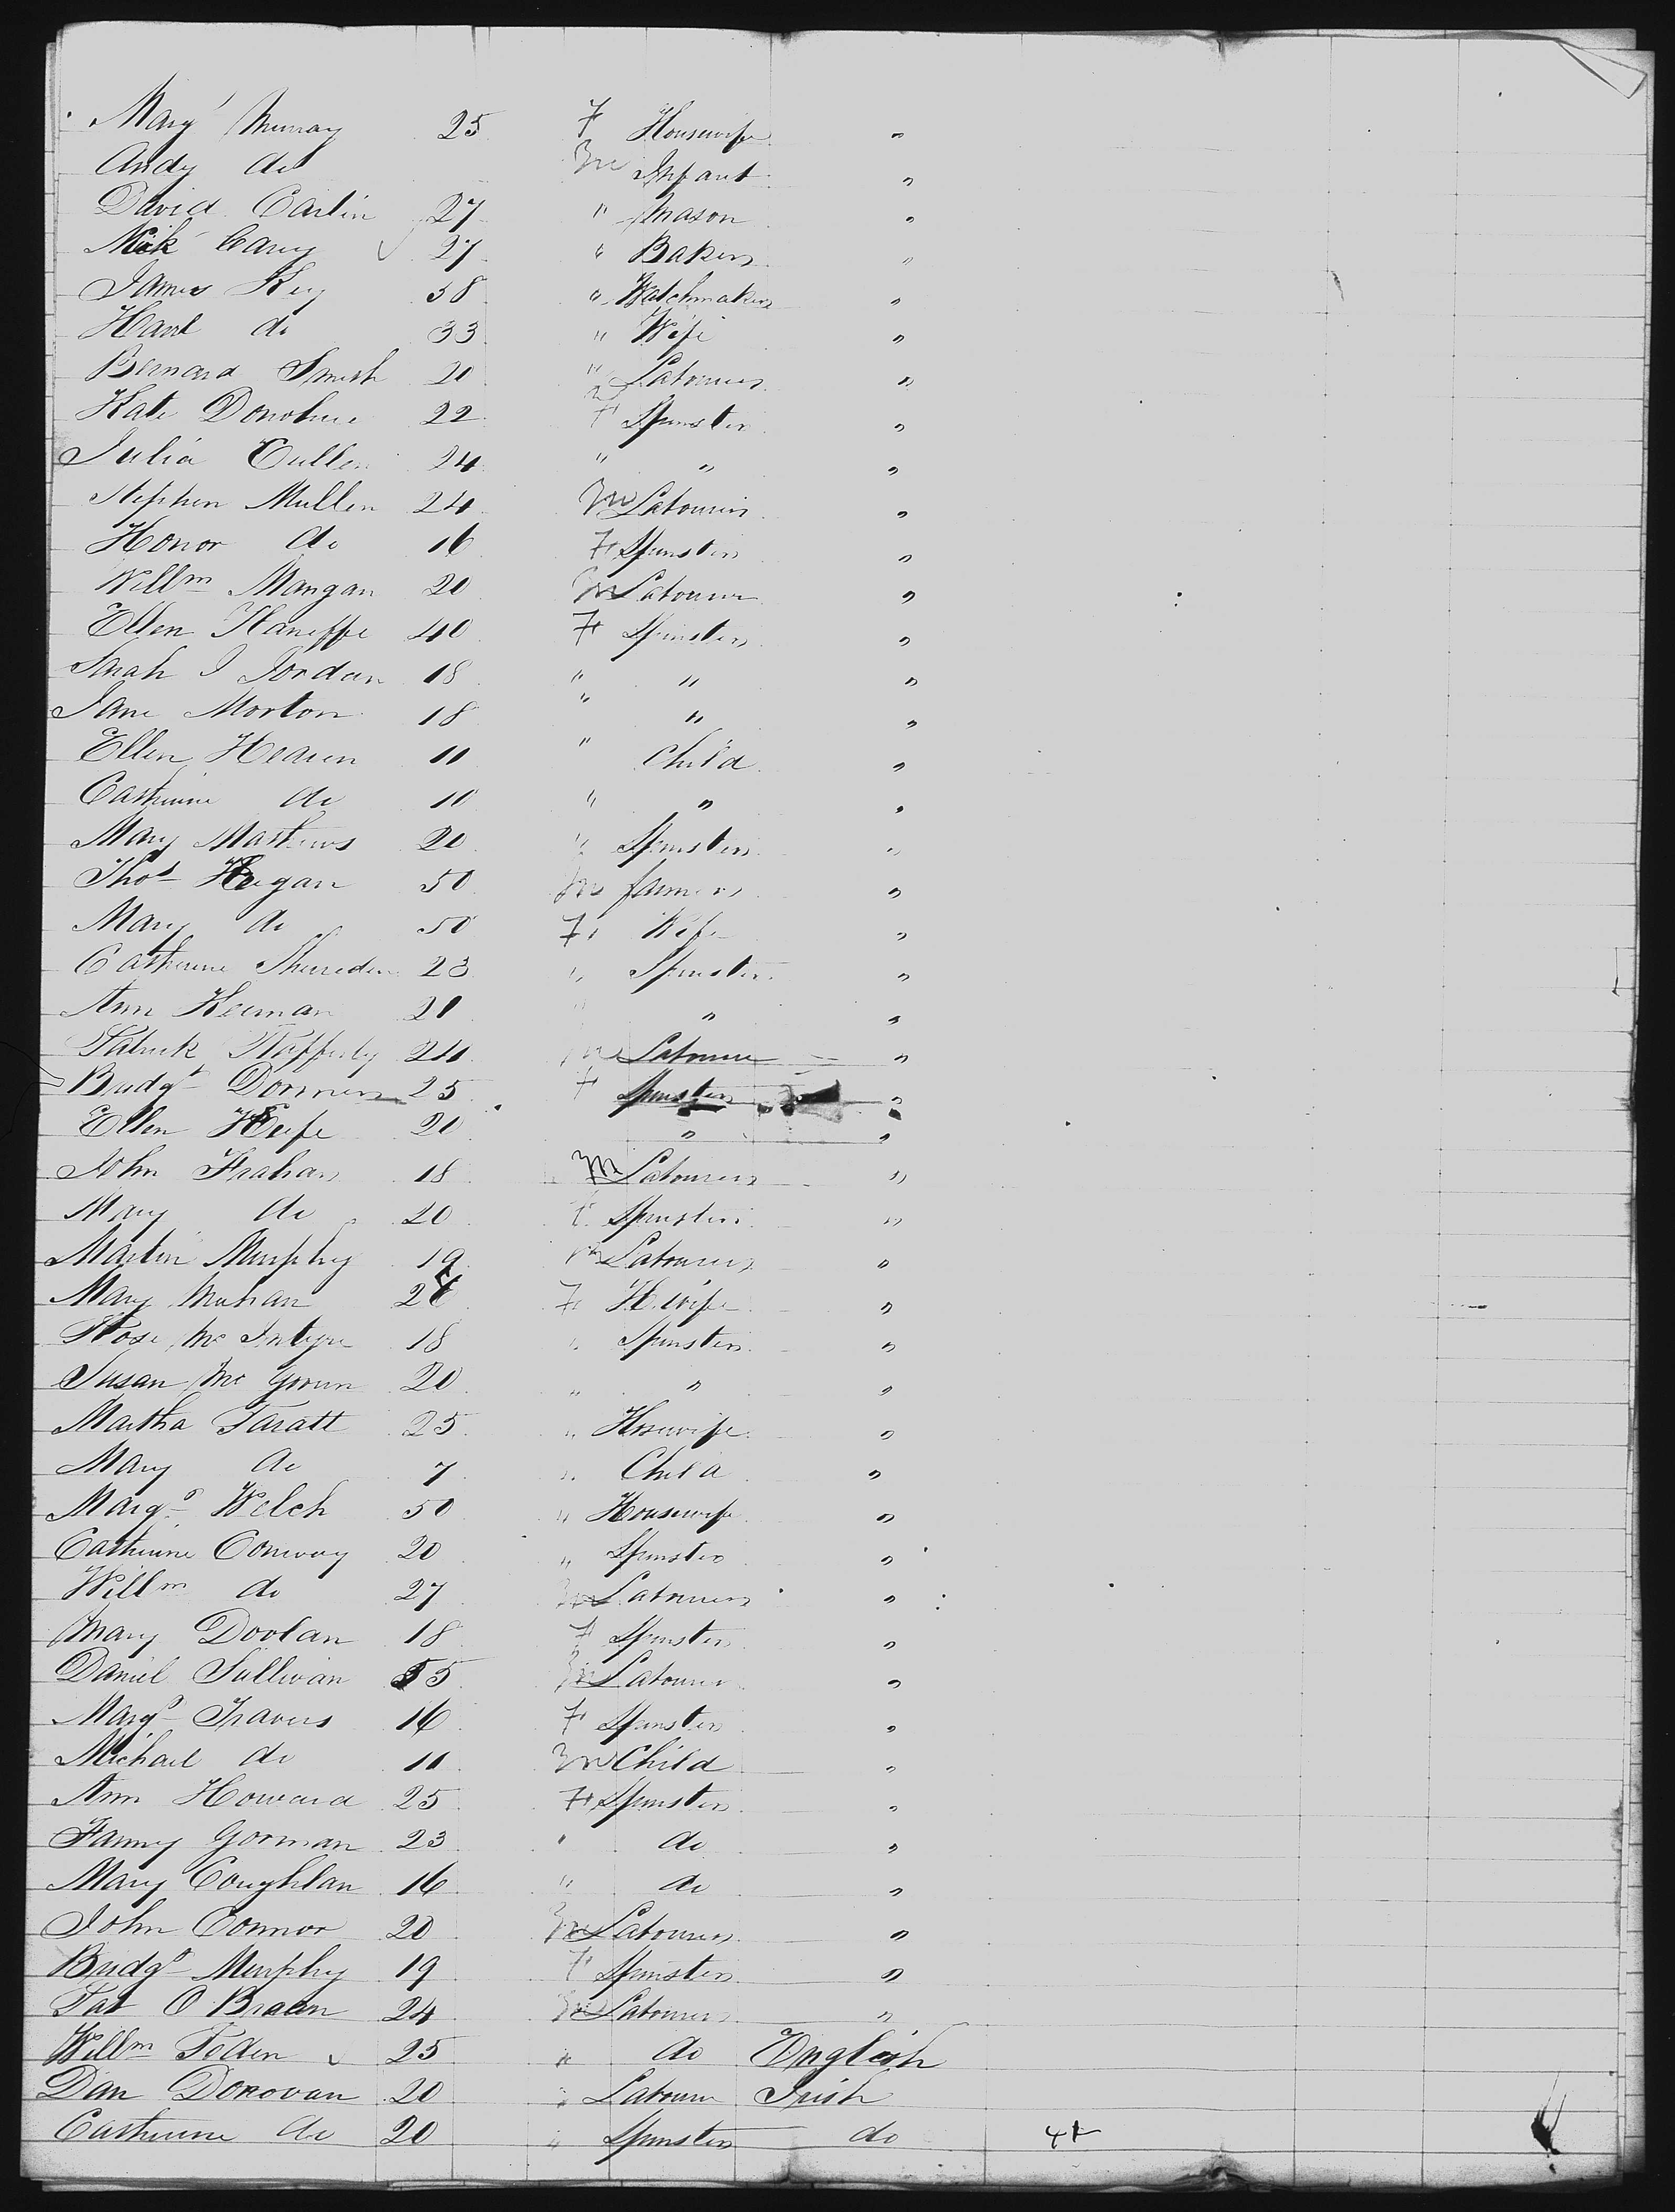 Mary Murray 25 F Housewife "
Andy do M Infant "
David Carlin 27 " Mason "
Mick Carey 27 " Baker "
James Key 38 " Watchmaker "
do 33 " Wife "
Bernard Smith 20 " Labourer "
Kate Donohue 22 F Spinster "
Julia Cullen 24 " " "
Stephen Mullen 24 M Labourer "
Honor do 16 F Spinster "
Willm Mangan 20 M Labourer "
Ellen 40 F Spinster "
Sarah J Jordan 18 " " "
Jane Morton 18 " " "
Ellen Hearen 11 " Child "
Catherine do 10 " " "
Mary Mathews 20 " Spinster "
Thos Hegan 50 M farmer "
Mary do 50 F Wife "
Catherine Sheredin 23 " Spinster "
Ann Keernan 20 " " "
Patrick Rafferty 24 M Labourer "
Bridgt 25 F Spinster "
Ellen Keefe 20 " "
John Frahan 18 M Labourer "
Mary do 20 F Spinster "
Martin Murphy 19 M Labourer "
Mary Mahan 24 F H.wife "
Rose McIntyre 18 " Spinster "
Susan Mc Govern 20 " " "
Martha Taratt 25 " Hosewife "
Mary do 7 " Child "
Margt Welch 50 " Housewife "
Catherine Conway 20 " Spinster "
Willm do 27 M Labourer "
Mary Doolan 18 F Spinster "
Daniel Sullivan 55 M Labourer "
Margt Travers 16 F Spinster "
Michael do 11 M Child "
Ann Howard 25 F Spinster "
Fanny Gorman 23 " do "
Mary Coughlan 16 " do "
John Connor 20 M Labourer "
Bridgt Murphy 19 F Spinster "
Pat O Braen 24 M Labourer "
Willm Toden 25 " do English
Dan Donovan 20 " Labourer Irish
Catherine do 20 " Spinster do